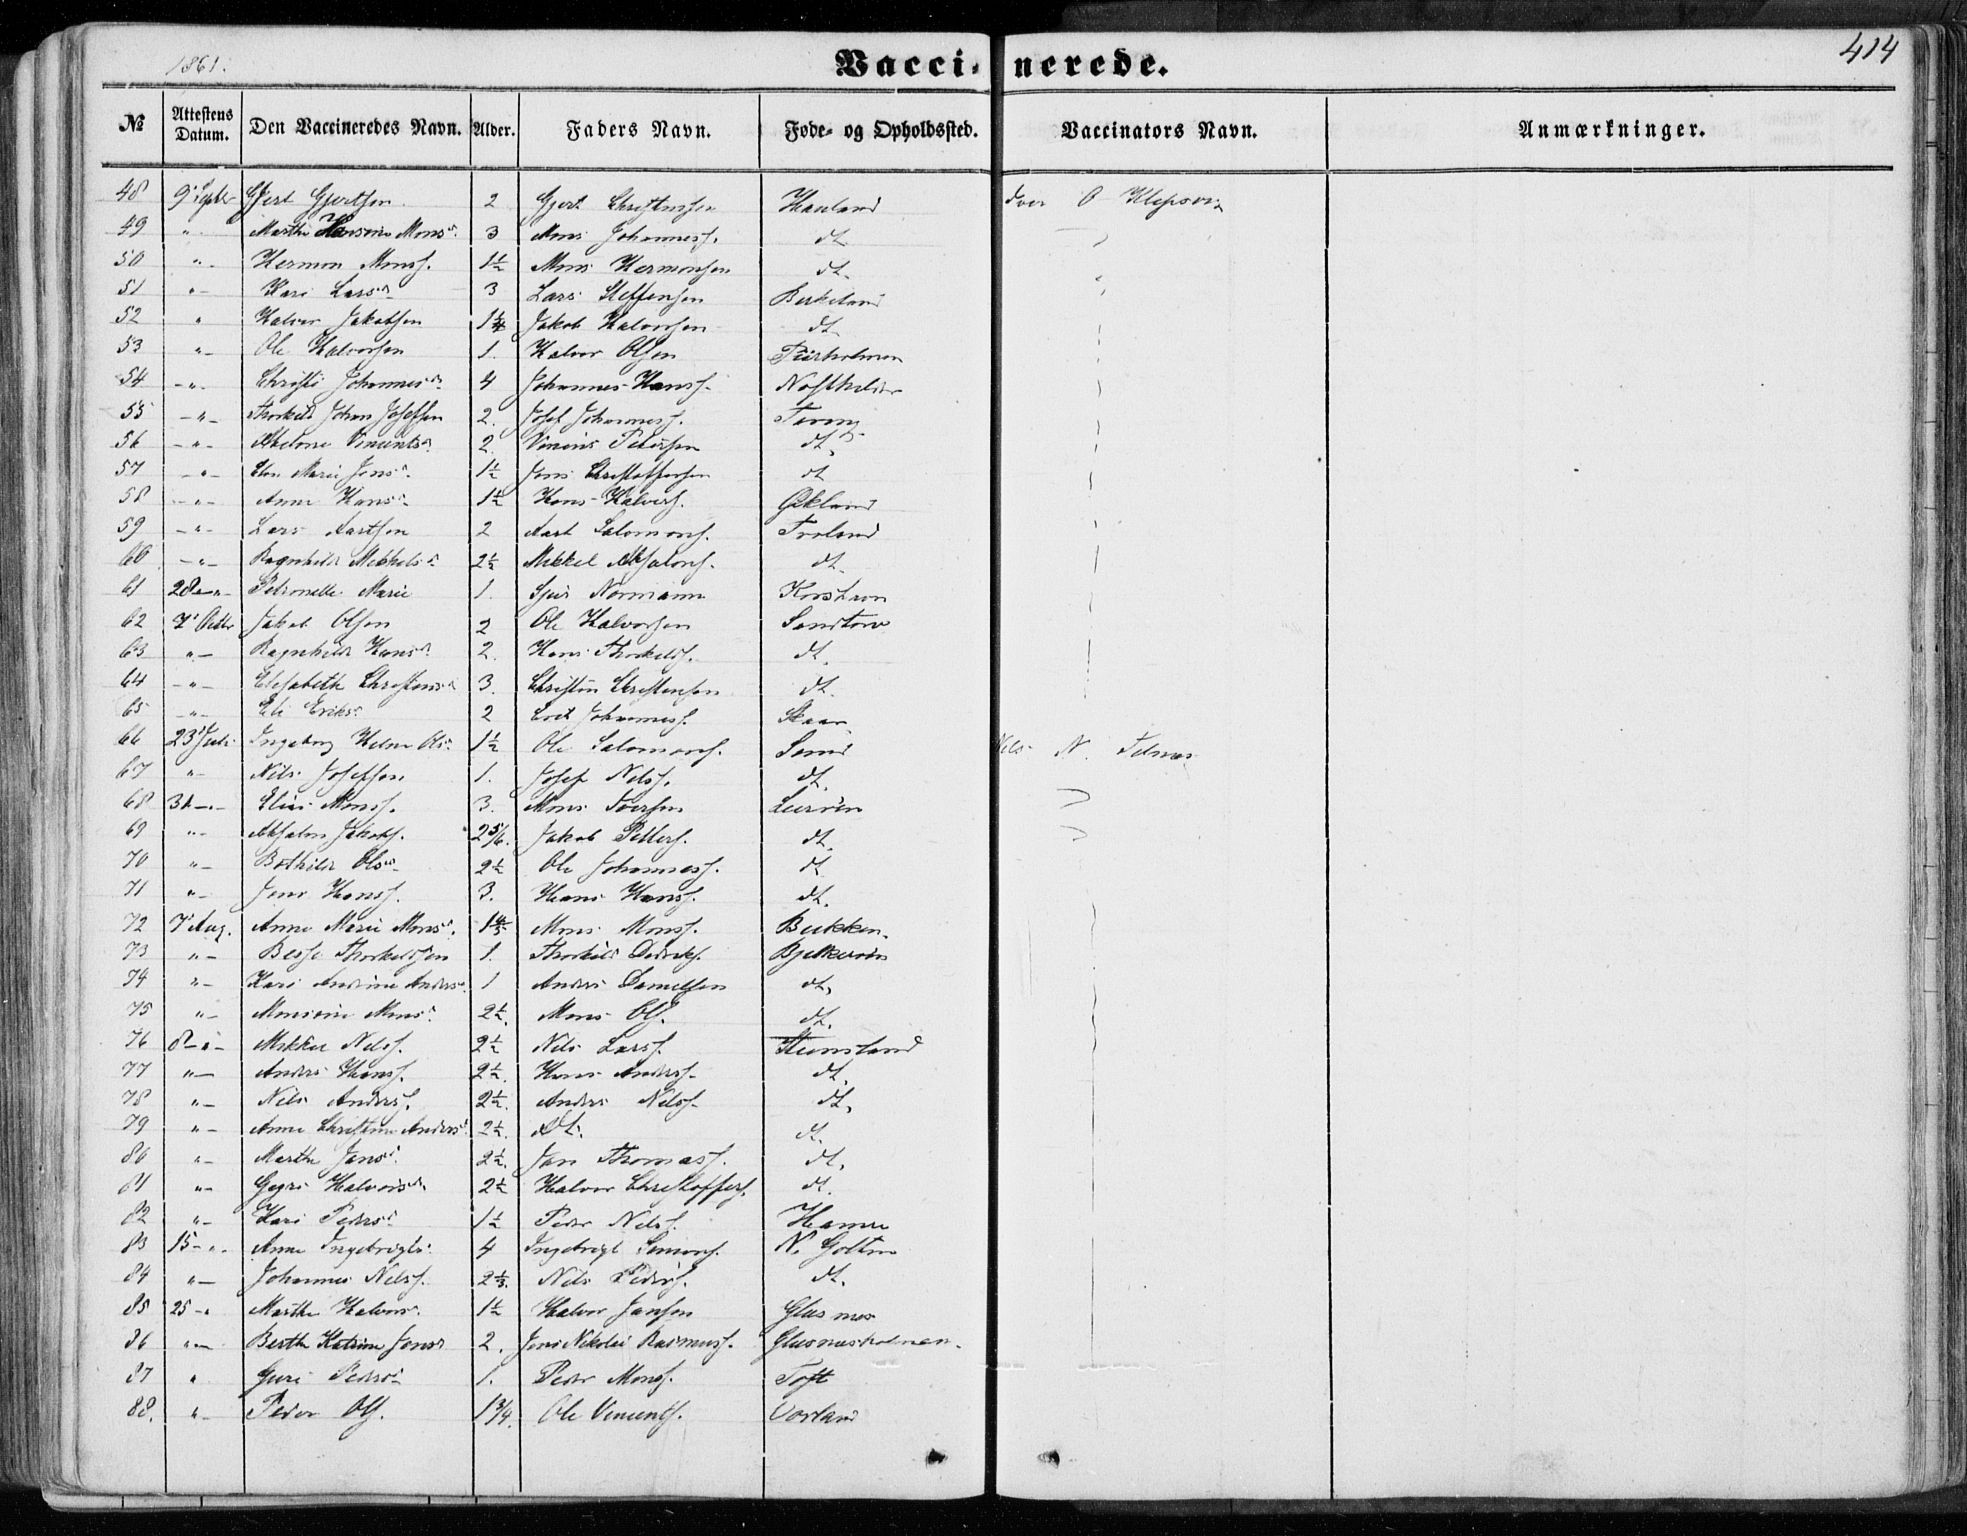 1861.
Vaccinerede.
414
№ Attestens Datum. Den Vaccineredes Navn. Alder. Faders Navn. Føde- og Opholdssted. Vaccinators Navn. Anmærkninger.
48 9' Septbr Gjert Gjertsen 2 Gjert Christensen Hauland Iver O
49 " Marthe Monsd. 3 Mons Johannesf. dt.
50 " Hermon Monsf. 1½ Mons Hermonsen dt.
51 " Kari Larsd. 3 Lars Steffensen Birkeland
52 " Halvor Jakobsen 1¼ Jakob Halvorsen dt.
53 " Ole Halvorsen 1. Halvor Olsen
54 " Christi Johannesd. 4 Johannes Hansf.
55 " Thorkild Johan Josefsen 2. Josef Johannesf.
56 " 2. Pedersen dt.
57 " Marie Jensd. 1½ Jens Christoffersen dt
58 " Anne Hansd. 1½ Hans Halvorf.
59 " Lars 2 Salomonf. Troland
60 " Ragnhild Mikkelsd. 2½ Mikkel Absalonf. dt.
61 28 " Petronelle Marie 1. Sjur Normann Korshavn
62 7' Octbr Jakob Olsen 2 Ole Halvorsen Sandtorv
63 " Ragnhild Hansd. 2. Hans Thorkildf. dt.
64 " Elisabeth Christensd. 3. Christen Christensen dt.
65 " Eli Eriksd. 2 Erik Johannesf. Skaar
66 23' Juli Ingeborg Olsd. 1½ Ole Salomonf. Sund Nils N. Telnæs
67 " Nils Josefsen 1. Josef Nilsf. dt.
68 31 " Elias Monsf. 3. Mons Iversen Lerøen
69 " Absalon Jakobf. 2 5/6. Jakob Pettersf. dt.
70 " Bothilde Olsd. 2½ Ole Johannesf. dt
71 " Jens Hansf. 3. Hans Hansf. dt.
72 7' Aug. Anne Marie Monsd. Mons Monsf. Bukken
73 " Thorkildsen 1. Thorkild Bjelkerøen
74 " Kari Andrine Andersd. 1 Anders Danielsen dt.
75 " Monsine Monsd. 2½. Mons Olf. dt.
76 8 " Mikkel Nilsf. 2½ Nils Larsf. Steinsland
77 " Anders Hansf. 2½. Hans Andersf. dt.
78 " Nils Andersf. 2½. Anders Nilsf. dt.
79 " Anne Christine Andersd. 2½. dt. dt.
80 " Marthe Jansd. 2½. Jan Thomasf. dt.
81 " Halvorsd. 2½ Halvor Christoffersf. dt.
82 " Kari Pedersd. 1½ Peder Nilsf. Hamre
83 15 " Anne Ingebrigtsd. 4 Ingebrigt Simonf. N. Golten
84 " Johannes Nilsf. 2⅓. Nils Pedersf. dt.
85 25 " Marthe Halvorsd. 1½ Halvor Jansen Glesnæs
86 " Berthe Katrine Jensd. 2. Jens Nikolai Rasmusf. Glesnæsholmen.
87 " Guri Pedersd. 1. Peder Monsf. Toft
88. " Peder Olf. 1¾. Ole Vincentf. Vorland